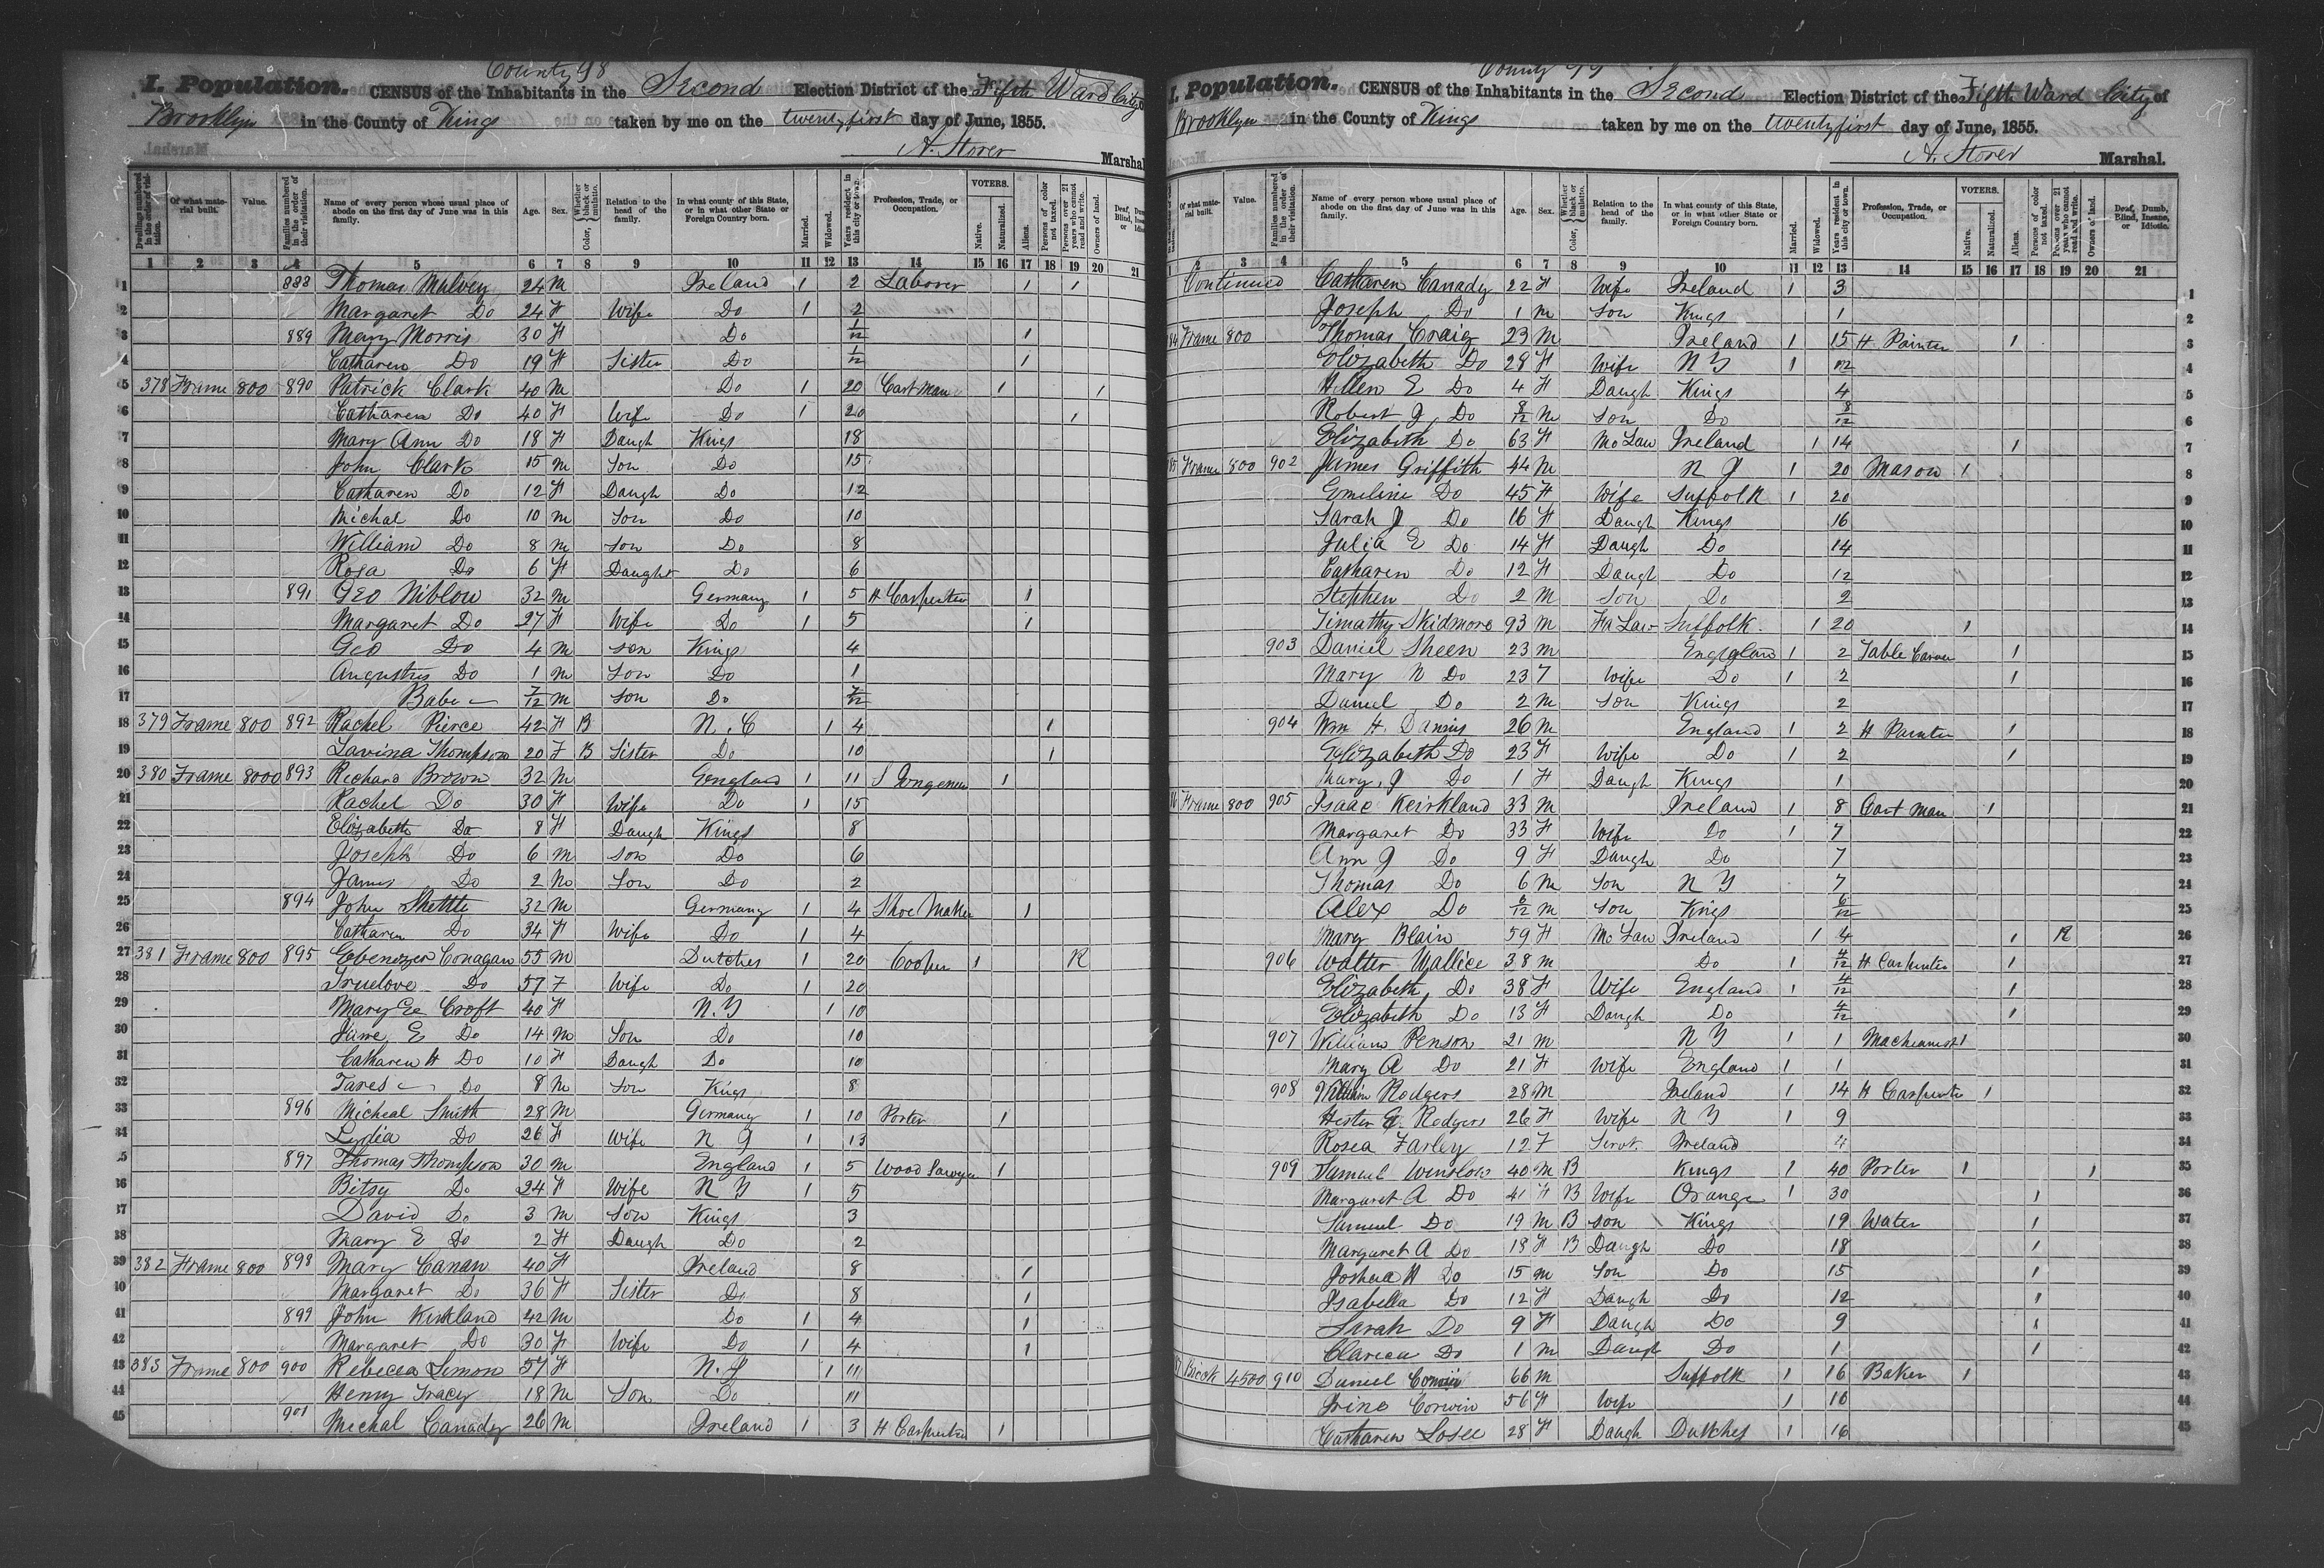 County 98
I. Population. CENSUS of the Inhabitants in the Second Election District of the Fifth Ward City of
Brooklyn in the County of Kings taken by me on the twentyfirst day of June, 1855.
A. Storer Marshal.
Dwellings numbered in the order of visitation. Of what material built. Value. Families numbered in the order of their visitation. Name of every person whose usual place of abode on the first day of June was in this family. Age. Sex. Color, Whether black or mulatto. Relation to the head of the family. In what county of this State, or in what other State or Foreign Country born. Married. Widowed. Years resident in this city or town. Profession, Trade, or Occupation. VOTERS. Native. Naturalized. Aliens. Persons of color not taxed. Persons over 21 years who cannot read and write. Owners of land. Deaf, Dumb, Blind, Insane, or Idiotic.
1 2 3 4 5 6 7 8 9 10 11 12 13 14 15 16 17 18 19 20 21
1 888 Thomas Mulvey 24 M Ireland 1 2 Laborer 1 1
2 Margaret Do 24 F Wife Do 1 2
3 889 Mary Morris 30 F Do 1/12 1
4 Catharen Do 19 F Sister Do 1/12 1
5 378 Frame 800 890 Patrick Clark 40 M Do 1 20 Cartman 1 1
6 Catharen Do 40 F Wife Do 1 20 1
7 Mary Ann Do 18 F Daugh Kings 18
8 John Clark 15 M Son Do 15
9 Catharen Do 12 F Daugh Do 12
10 Michal Do 10 M Son Do 10
11 William Do 8 M Son Do 8
12 Rosa Do 6 F Daught Do 6
13 891 Geo Niblow 32 M Germany 1 5 H Carpenter 1
14 Margaret Do 27 F Wife Do 1 5 1
15 Geo Do 4 M Son Kings 4
16 Augustus Do 1 M Son Do 1
17 Babe 7/12 M Son Do 7/12
18 379 Frame 800 892 Rachel Pierce 42 F B N. C 1 4 1
19 Lavina Thompson 20 F B Sister Do 10 1
20 380 Frame 8000 893 Richard Brown 32 M England 1 11 1
21 Rachel Do 30 F Wife Do 1 15
22 Elizabeth Do 8 F Daugh Kings 8
23 Joseph Do 6 M Son Do 6
24 James Do 2 M Son Do 2
25 894 John Shettle 32 M Germany 1 4 Shoe Maker 1
26 Catharen Do 34 F Wife Do 1 4
27 381 Frame 800 895 Ebenezer Conagan 55 M Dutches 1 20 Cooper 1 R
28 Truelove Do 57 F Wife Do 1 20
29 Mary Croft 40 F N.Y 1 10
30 E Do 14 M Son Do 10
31 Catharen H Do 10 F Daugh Do 10
32 Do 8 M Son Kings 8
33 896 Micheal Smith 28 M Germany 1 10 Porter 1
34 Lydia Do 26 F Wife N J 1 13
35 897 Thomas Thompson 30 M England 1 5 Wood Sawyer 1
36 Bitsy Do 24 F Wife N Y 1 5
37 David Do 3 M Son Kings 3
38 Mary E Do 2 F Daugh Do 2
39 382 Frame 800 898 Mary Canan 40 F Ireland 8 1
40 Margaret Do 36 F Sister Do 8 1
41 899 John Kirkland 42 M Do 1 4 1
42 Margaret Do 30 F Wife Do 1 4 1
43 383 Frame 800 900 Rebecca Lemon 57 F N. J 1 11
44 Henry Tracy 18 M Son Do 11
45 901 Michal Canady 26 M Ireland 1 3 H Carpenter 1
County 99
I. Population. CENSUS of the Inhabitants in the Second Election District of the Fifth Ward City of
Brooklyn in the County of Kings taken by me on the twentyfirst day of June, 1855.
A. Storer Marshal.
Of what material built. Value. Families numbered in the order of their visitation. Name of every person whose usual place of abode on the first day of June was in this family. Age. Sex. Color, Whether black or mulatto. Relation to the head of the family. In what county of this State, or in what other State or Foreign Country born. Married. Widowed. Years resident in this city or town. Profession, Trade, or Occupation. VOTERS. Native. Naturalized. Aliens. Persons of color not taxed. Persons over 21 years who cannot read and write. Owners of land. Deaf, Dumb, Blind, Insane, or Idiotic.
1 2 3 4 5 6 7 8 9 10 11 12 13 14 15 16 17 18 19 20 21
Continued Catharen Canady 22 F Wife Ireland 1 3 1
Joseph Do 1 M Son Kings 1 2
84 Frame 800 Thomas Craig 23 M Ireland 1 15 H Painter 1 3
Elizabeth Do 28 F Wife N Y 1 4
Hellen E Do 4 F Daugh Kings 4 5
Robert J Do 8/12 M Son Do 8/12 6
Elizabeth Do 63 F Mo Law Ireland 1 14 1 7
85 Frame 800 902 James Griffith 44 M N J 1 20 Mason 1 8
Emeline Do 45 F Wife Suffolk 1 20 9
Sarah J Do 16 F Daugh Kings 16 10
Julia E Do 14 F Daugh Do 14 11
Catharen Do 12 F Daugh Do 12 12
Stephen Do 2 M Son Do 2 13
Timathy Skidmore 93 M Fa Law Suffolk 1 20 1 14
903 Daniel Sheen 23 M England 1 2 Table Carver 1 15
Mary N Do 23 F Wife Do 1 2 1 16
Daniel Do 2 M Son Kings 2 17
904 Wm H. Dannis 26 M England 1 2 H Painter 1 18
Elizabeth Do 23 F Wife Do 1 2 1 19
Mary J Do 1 F Daugh Kings 1 20
Frame 800 905 Isaac Keirkland 33 M Ireland 1 8 Cart Man 1 21
Margaret Do 33 F Wife Do 1 7 22
Ann J Do 9 F Daugh Do 7 23
Thomas Do 6 M Son N Y 7 24
Alex Do 6/12 M Son Kings 6/12 25
Mary Blain 59 F Mo Law Ireland 1 4 1 R 26
906 Walter Wallice 38 M Do 1 4/12 H Carpenter 1 27
Elizabeth Do 38 F Wife England 1 4/12 1 28
Elizabeth Do 13 F Daugh Do 4/12 1 29
907 William Penson 21 M N Y 1 1 Macheanest 1 30
Mary A Do 21 F Wife England 1 1 31
908 William Rodgers 28 M Ireland 1 14 H Carpenter 1 32
Hester E Rodgers 26 F Wife N Y 1 9 33
Rosea Farley 12 F Servt. Ireland 4 34
909 Samuel Winslow 40 M B Kings 1 40 Porter 1 1 35
Margaret A Do 41 F B Wife Orange 1 30 1 36
Samuel Do 19 M B Son Kings 19 Water 1 37
Margaret A Do 18 F B Daugh Do 18 1 38
Joshua H Do 15 M Son Do 15 1 39
Isabella Do 12 F Daugh Do 12 1 40
Sarah Do 9 F Daugh Do 9 1 41
Claricea Do 1 M Daugh Do 1 1 42
Brick 4500 910 Daniel Corwin 66 M Suffolk 1 16 Baker 1 43
Irine Corwin 56 F Wife 1 16 44
Catharen Losee 28 F Daugh Dutches 1 16 45